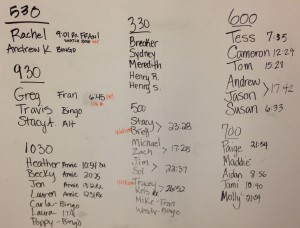 530
Rachel 9:01 Pd FRAN!
Andrew K. BINGO
930
Greg Fran 6:45
Travis Bingo
Stacy A. Alt
1030
Heather Annie
Becky Annie
Jen Annie
Lauren Annie
Carla- Bingo
Laura
Poppy- Bingo
330
Breaker
Sydney
Meredyth
Henry R.
Henry S.
500
Stacy
Brett > 23:28
Michael
Zach > 17:28
Jim
Sol > 22:37
Tracey
Kris > 26:52
Mike- Fran
Wendy- Bingo
600
Tess 7:35
Cameron 12:29
Tom 15:28
Andrew
Jason > 17:42
Susan 6:33
700
Paige 21:54
Maddie
Aidan 8:56
Tami 10:40
Molly 21:09